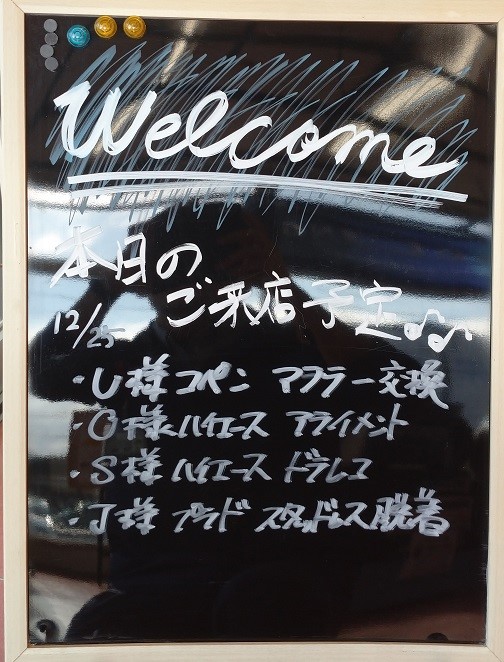 Welcome
本日の
ご来店予定♪♪
12/25
・U様 コペン マフラー交換
・O様 ハイエース アライメント
・S様 ハイエース ドラレコ
・J様 プラド スタッドレス脱着